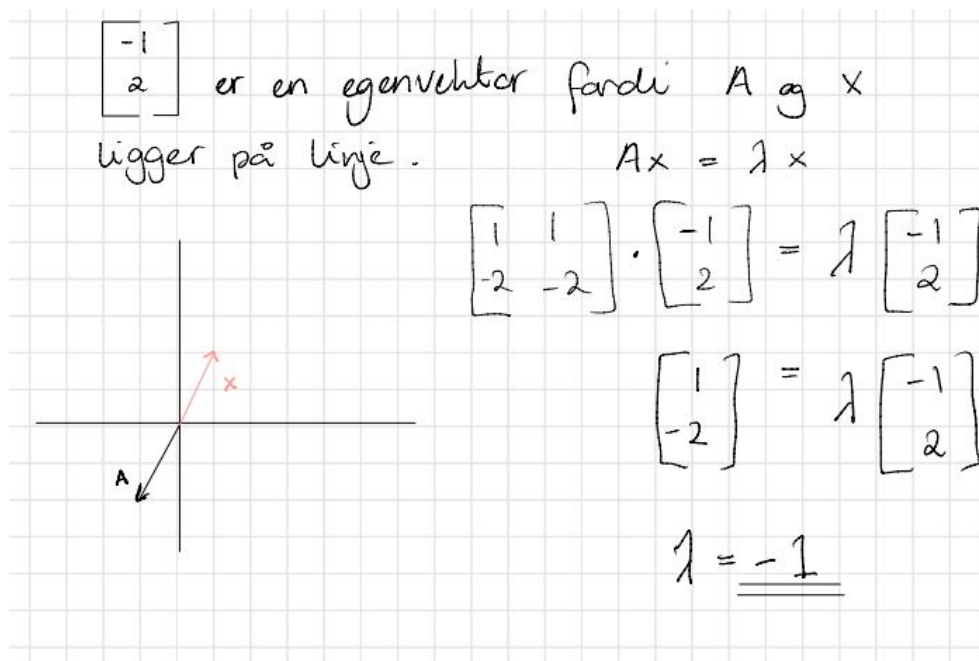 [-1
2] er en egenvektor fordi A og x
ligger på linje.
Ax = λx
[1 1
-2 -2] · [-1
2] = λ [-1
2]
[1
-2] = λ [-1
2]
x
A
λ = -1